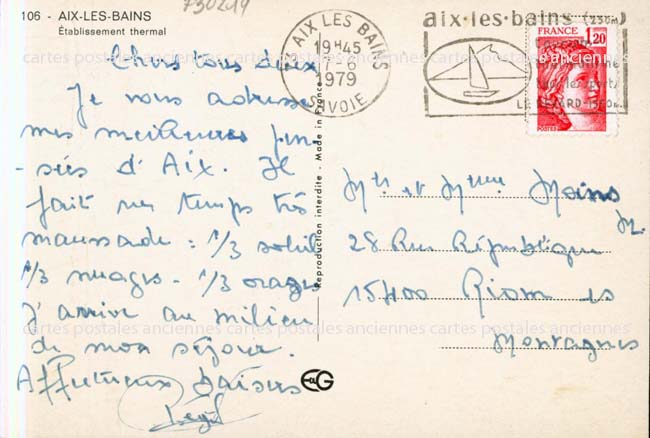 730219
106 - AIX-LES-BAINS
Établissement thermal
Chers tous deux
Je vous adresse
mes meilleures pen-
-sées d'Aix. Il
fait un temps très
maussade : 1/3 soleil
1/3 nuages - 1/3 orages
J'arrive au milieu
de mon séjour.
Affectueux baisers
Reproduction interdite - Made in France
AIX LES BAINS
19H45
7-8
1979
SAVOIE
aix-les-bains (230m)
LE REVARD-1550m
FRANCE
1,20
POSTES
Mr et Mme Moins
M.
28 Rue République
15400 Riom es
Montagnes
EG
cartes postales anciennes cartes postales anciennes cartes postales anciennes